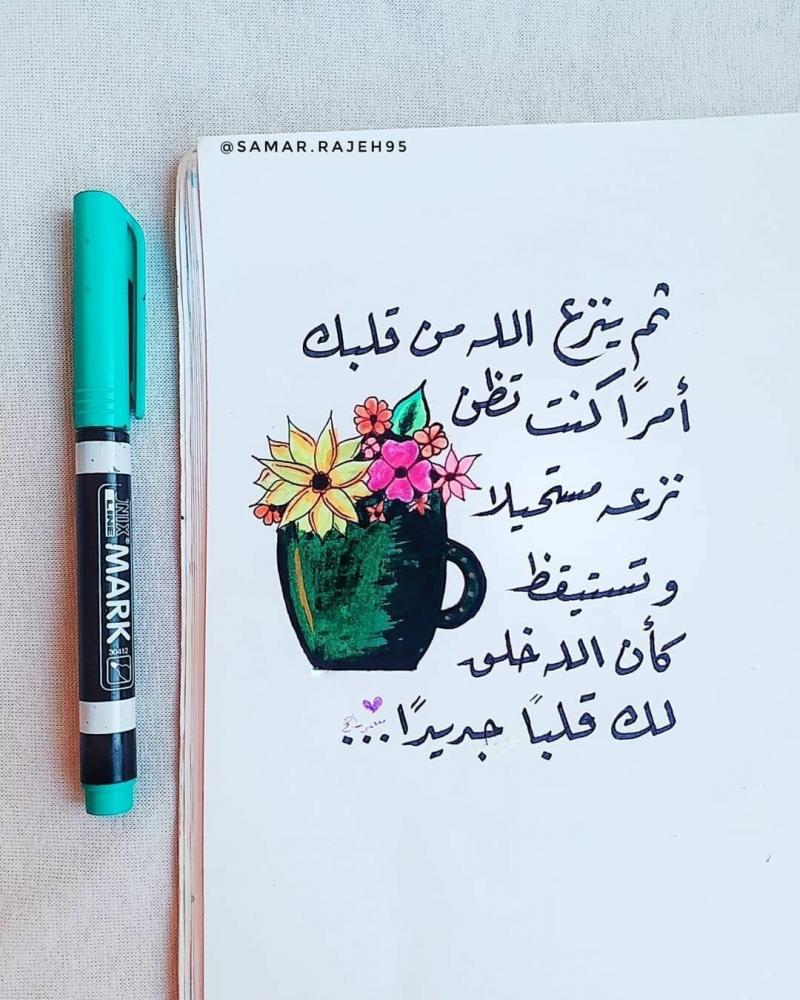 @SAMAR.RAJEH95
ثم ينزع الله من قلبك
أمرًا كنت تظن
نزعه مستحيلا
وتستيقظ
كأن الله خلق
لك قلبًا جديدًا...
JNIX®
LINE MARK
30412